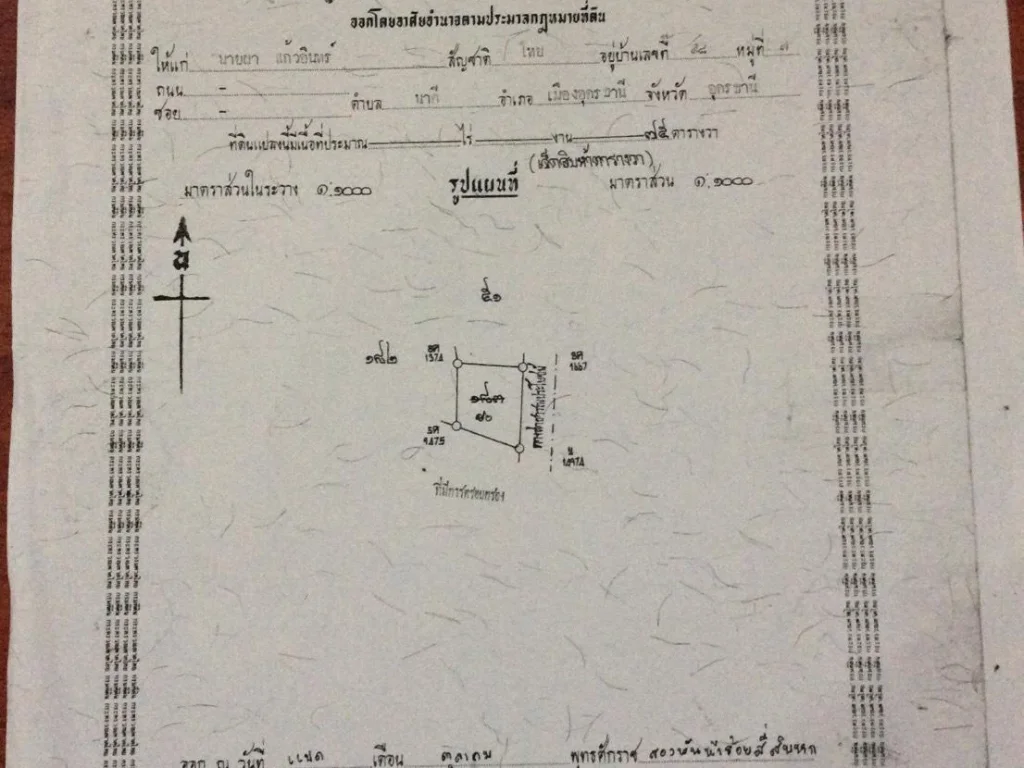 ออกโดยอาศัยอำนาจตามประมวลกฎหมายที่ดิน
ให้แก่ นายยา แก้วอินทร์ สัญชาติ ไทย อยู่บ้านเลขที่ ๕๘ หมู่ที่ ๗
ถนน - ตำบล นาดี อำเภอ เมืองอุดรธานี จังหวัด อุดรธานี
ซอย -
ที่ดินแปลงนี้มีเนื้อที่ประมาณ ไร่ งาน ๗๕ ตารางวา
(เจ็ดสิบห้าตารางวา)
มาตราส่วนในระวาง ๑:๑๐๐๐ รูปแผนที่ มาตราส่วน ๑:๑๐๐๐
น
๕๑
๑๙๒
1667
๘๐
9475
ทางสาธารณประโยชน์
ที่มีการครอบครอง
ออก ณ วันที่ แปด เดือน ตุลาคม พุทธศักราช สองพันห้าร้อยสี่สิบหก